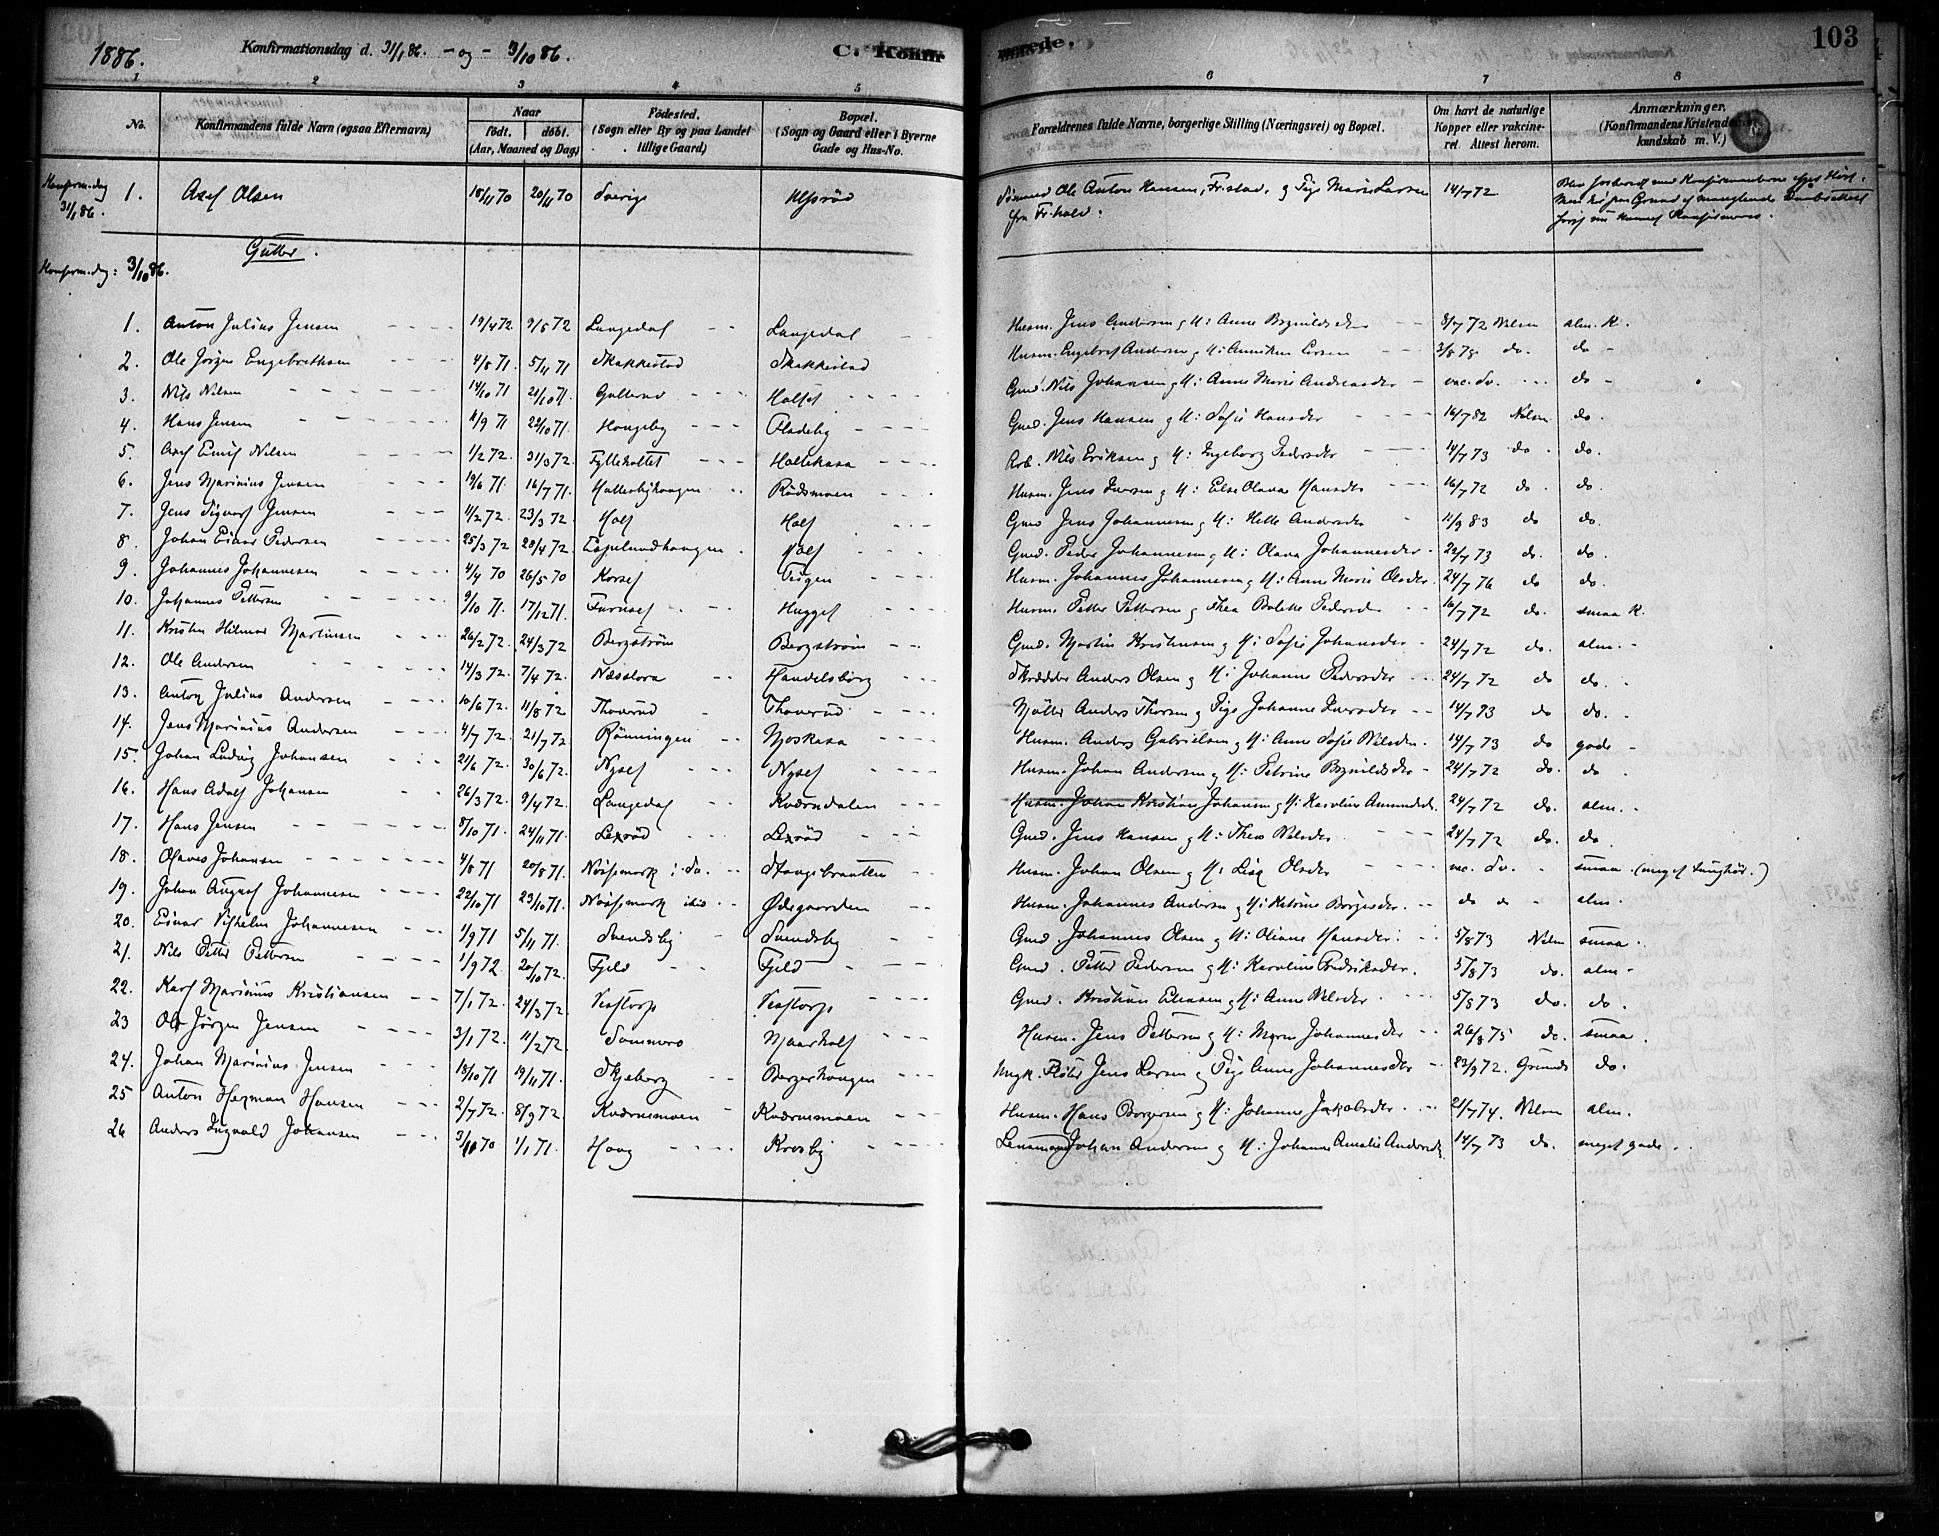 1886. Konfirmationsdag d. 31/1 86. - og - 3/10 86. C. Konfirmerede. 103
1 2 3 4 5 6 7 8
No. Konfirmandens fulde Navn (ogsaa Efternavn) Naar født. døbt. (Aar, Maaned og Dag) Fødested. (Sogn eller By og paa Landet tillige Gaard) Bopæl. (Sogn og Gaard eller i Byerne Gade og Hus-No. Forældrenes fulde Navne, borgerlige Stilling (Næringsvei) og Bopæl. Om havt de naturlige Kopper eller vakcineret. Attest herom. Anmærkninger. (Konfirmandens Kristendomskundskab m. V.)
Konfirm.dag 31/1 86. 1. Axel Olsen 18/11 70 20/11 70 Sverige Ulfsrød Sømand Ole Anton Hansen, Fr.stad, og Pige Marie Larsen fra Fr.hald. 14/7 72
Gutter.
Konfirm.dag: 3/10 86.
1. Anton Julius Jensen 19/4 72 9/5 72 Langedal Langedal Husm. Jens Andersen og H: Anne Brynildsdr 8/7 72 Nilsen alm. K.
2. Ole Jørgen Engebrethsen 4/8 71 5/11 71 Skakkestad Skakkestad Husm. Engebret Andersen og H: Anniken Larsen 3/8 78 do. do -
3. Nils Nilsen 14/10 71 21/10 71 Gullerud Holset Gmd. Nils Johansen og H: Anne Marie Andreasdr vac. do. do -
4. Hans Jensen 11/9 71 22/10 71 Haugeby Fladeby Gmd. Jens Hansen og H: Sofie Hansdr 16/7 82 Nilsen do.
5. Axel Emil Nilsen 1/2 72. 31/3 72. Fylleholtet Hollekasa Arb. Nils Eriksen og H: Ingeborg Pedersdr 14/7 73 do. do.
6. Jens Marinius Jensen 19/6 71. 16/7 71. Hallerbyhaugen Rødsmoen Husm. Jens Iversen og H: Else Olava Hansdr 16/7 72 do. do.
7. Jens Sigvart Jensen 11/2 72. 23/3 72. Holt Holt Gmd Jens Johannesen og H: Helle Andersdr 11/9 83 do do.
8. Johan Einar Pedersen 25/3 72 28/4 72. Espelundhaugen Holt Gmd. Peder Johannesen og H: Olava Johannesdr. 22/7 73 do. do.
9. Johannes Johannesen 4/4 70 26/5 70 Korset Teigen Husm. Johannes Johannesen og H: Anne Marie Olsdr. 24/7 76 do do.
10. Johannes Pettersen 9/10 71. 17/12 71. Furuset Hugget Husm Petter Pettersen og Thea Bolette Pedersdr 16/7 72 do. smaa K.
11. Kristen Hilmar Martinsen 26/2 72. 24/3 72 Bergstrøm Bergstrøm Gmd. Martin Kristensen og H: Sofie Johansdr 24/7 72 do. alm. -
12. Ole Andersen 14/3 72. 7/4 72. Næsstora Handelsborg Skrædder Anders Olsen og H: Johanne Pedersdr 24/7 72 do do. -
13. Anton Julius Andersen 10/6 72. 11/8 72 Thoverud Thoverud Møller Anders Thorsen og Pige Johanne Iversdr 14/7 73 do do. -
14. Jens Marinius Andersen 4/7 72. 21/7 72 Rønningen Moskasa Husm. Anders Gabrielsen og H: Anne Sofie Nilsdr. 14/7 73 do gode -
15. Johan Ludvig Johansen 21/6 72. 30/6 72. Nyset Nyset Husm. Johan Andersen og H: Petrine Brynildsdr 24/7 72 do. do
16. Hans Adolf Johansen 26/3 72. 9/4 72. Langedal Kværndalen Husm. Johan Kristian Johansen og H: Karoline Amundsdr. 24/7 72 do. alm. -
17. Hans Jensen 8/10 71. 24/11 71. Lexrød Lexrød Gmd. Jens Hansen og H: Thea Nilsdr 24/7 72 do. do
18. Olaves Johansen 4/8 71 20/8 71. Næssmark i do. Stangebraatten Husm. Johan Olsen og H: Lisa Olsdr vac. do. smaa. (meget tunghør.)
19. Johan August Johannesen 22/10 71 29/10 71. Næssmark ibid Ødegaarden Husm. Johannes Andersen og H: Katrine Borgesdr. do do alm.
20. Einar Vilhelm Johannesen 1/9 71 5/11 71. Svendsby Svendsby Gmd Johannes Olsen og H: Oliane Hansdr. 5/8 73 Nilsen smaa.
21. Nils Petter Pettersen 1/9 72. 20/10 72. Fjeld Fjeld Gmd. Petter Pedersen og H: Karoline Fredriksdr. 5/8 73 do. alm -
22. Karl Marinius Kristiansen 7/1 72. 24/3 72 Vestorp Vestorp Gmd. Kristian Eliasen og H: Anne Nilsdr. 5/8 73 do. do.
23 Ole Jørgen Jensen 3/1 72. 11/2 72. Sommero Maarholt Husm. Jens Pettersen og H: Maren Johannesdr 26/8 75 do. smaa.
24. Johan Marinius Jensen 18/10 71 19/11 71. Skjeberg Bergerhaugen Ungk. Fløter Jens Larsen og Pige Anne Johannesdr 23/9 72. Grundt do.
25 Anton Herman Hansen 2/7 72. 8/9 72. Kværnmoen Kværnmoen Husm. Hans Borgersen og H: Johanne Jakobsdr. 21/7 74. Nilsen alm.
26 Anders Ingvald Johansen 3/11 70 1/1 71. Haug Krosby Lensmand Johan Andersen og H: Johanne Amalie Andersdr. 14/7 73 do. meget gode.